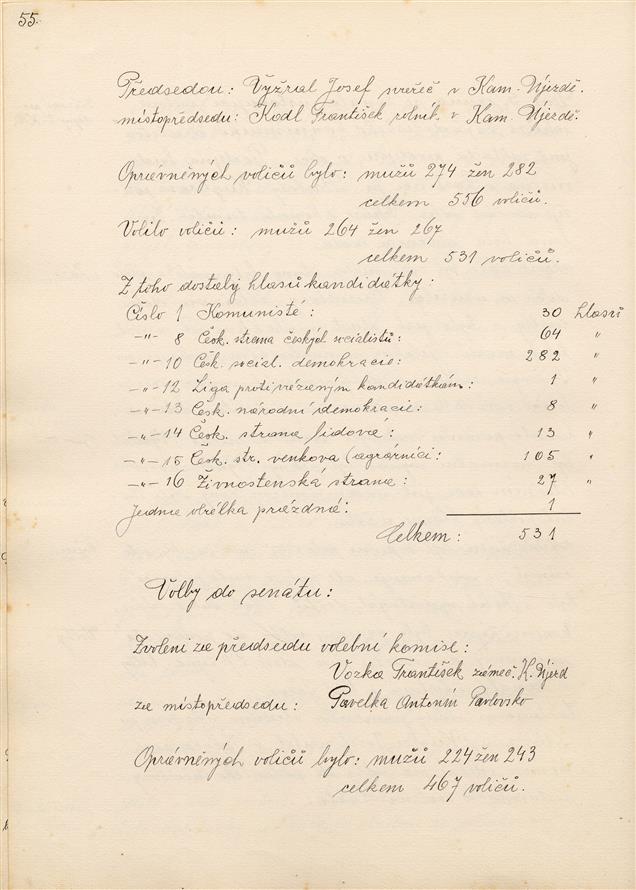 55.
Předsedou: Vyžral Josef v Kam. Újezdě.
místopředsedu: Kodl František rolník v Kam. Újezdě.
Oprávněných voličů bylo: mužů 274 žen 282
celkem 556 voličů.
Volilo voličů: mužů 264 žen 267
celkem 531 voličů.
Z toho dostaly hlasů kandidátky:
Číslo 1 Komunisté: 30 hlasů
-"- 8 Česk. strana českých socialistů: 64 "
-"- 10 Česk. social. demokracie: 282 "
-"- 12 Liga proti vázaným kandidátkám: 1 "
-"- 13 Česk. národní demokracie: 8 "
-"- 14 Česk. strana lidová: 13 "
-"- 15 Česk. str. venkova (agrárníci: 105 "
-"- 16 Živnostenská strana: 27 "
Jedna obálka prázdná: 1
Celkem: 531
Volby do senátu:
Zvoleni za předsedu volební komise:
Vozka František zámeč. K. Újezd
za místopředsedu: Pavelka Antonín Pavlovsko
Oprávněných voličů bylo: mužů 224 žen 243
celkem 467 voličů.